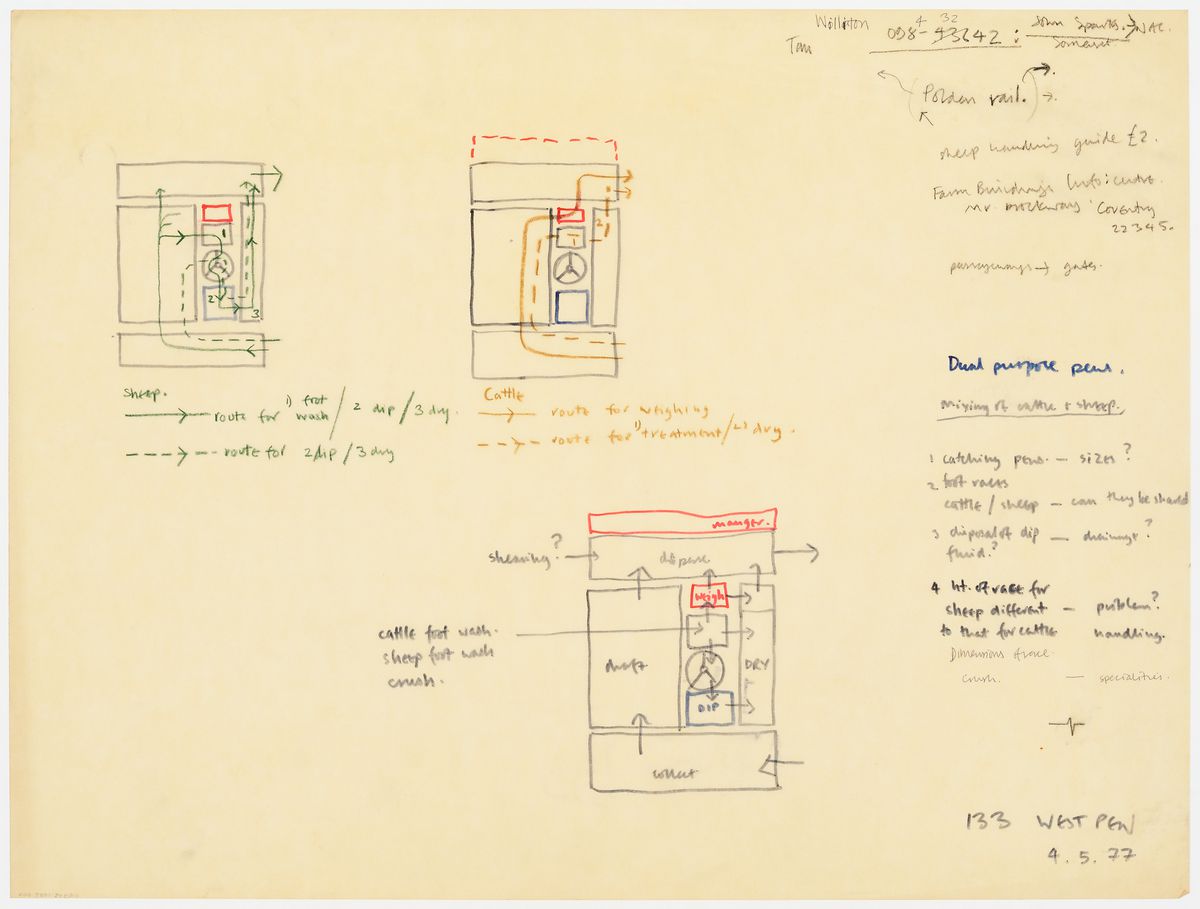 Williton
4 32
098-43642 : John Sparks. NAC.
Somerset
Tan
Polden rail.
sheep handling guide £2.
Farm Buildings Info: centre.
Mr Brockways Coventry
22345.
passageways → gates.
1
2
3
2
1
Sheep.
route for 1) foot wash / 2 dip / 3 dry.
route for 2 dip / 3 dry
Cattle
route for weighing
route for 1) treatment / 2) dry.
Dual purpose pens.
mixing of cattle + sheep.
1 catching pens. — sizes?
2 foot races
cattle / sheep — can they be shared
3 disposal of dip — drainage?
fluid?
4 ht. of race for
sheep different — problem?
to that for cattle handling.
Dimensions of race.
crush. — specialities.
manger.
shearing?
disperse
weigh
cattle foot wash.
sheep foot wash
crush.
draft
DRY
DIP
collect
133 WEST PEN
4.5.77